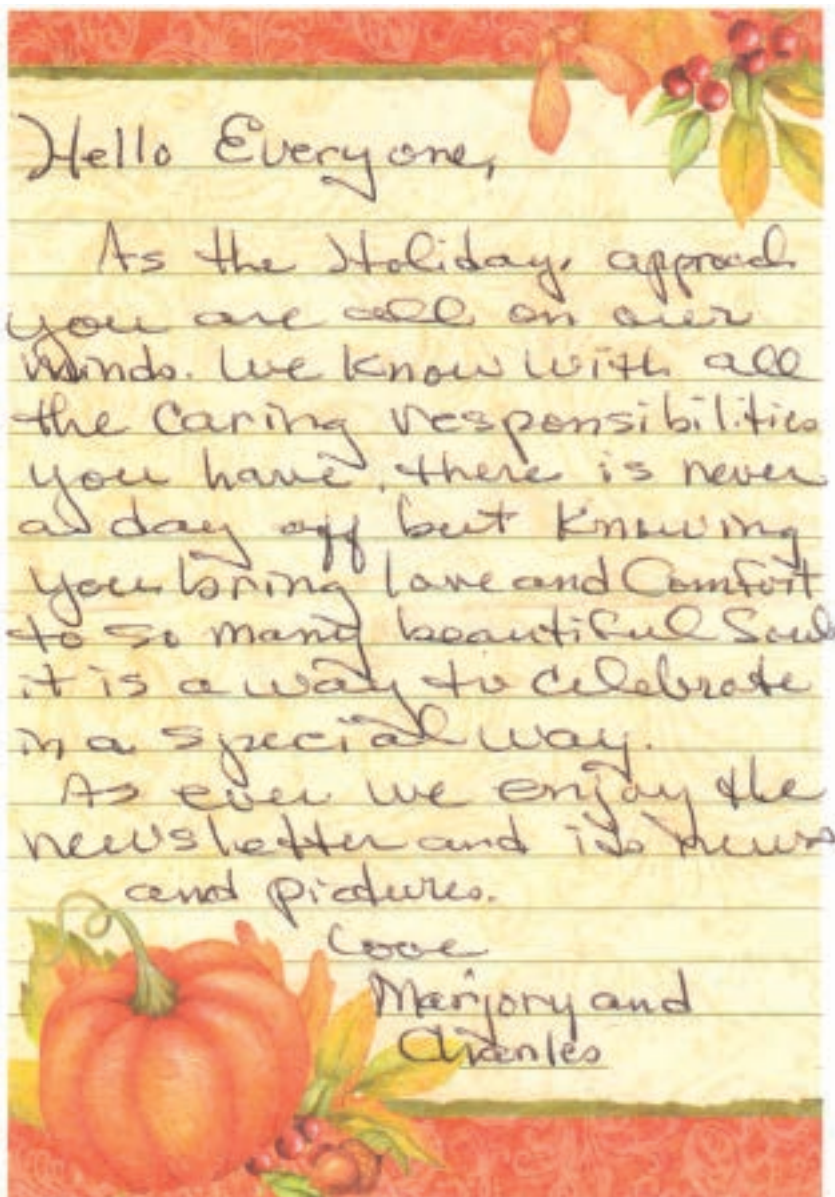 Hello Everyone,
As the Holidays approach
you are all on our
minds. We know with all
the caring responsibilities
you have, there is never
a day off but knowing
you bring love and Comfort
to so many beautiful Souls
it is a way to celebrate
in a special way.
As ever we enjoy the
newsletter and its news
and pictures.
Love
Marjory and
Charles